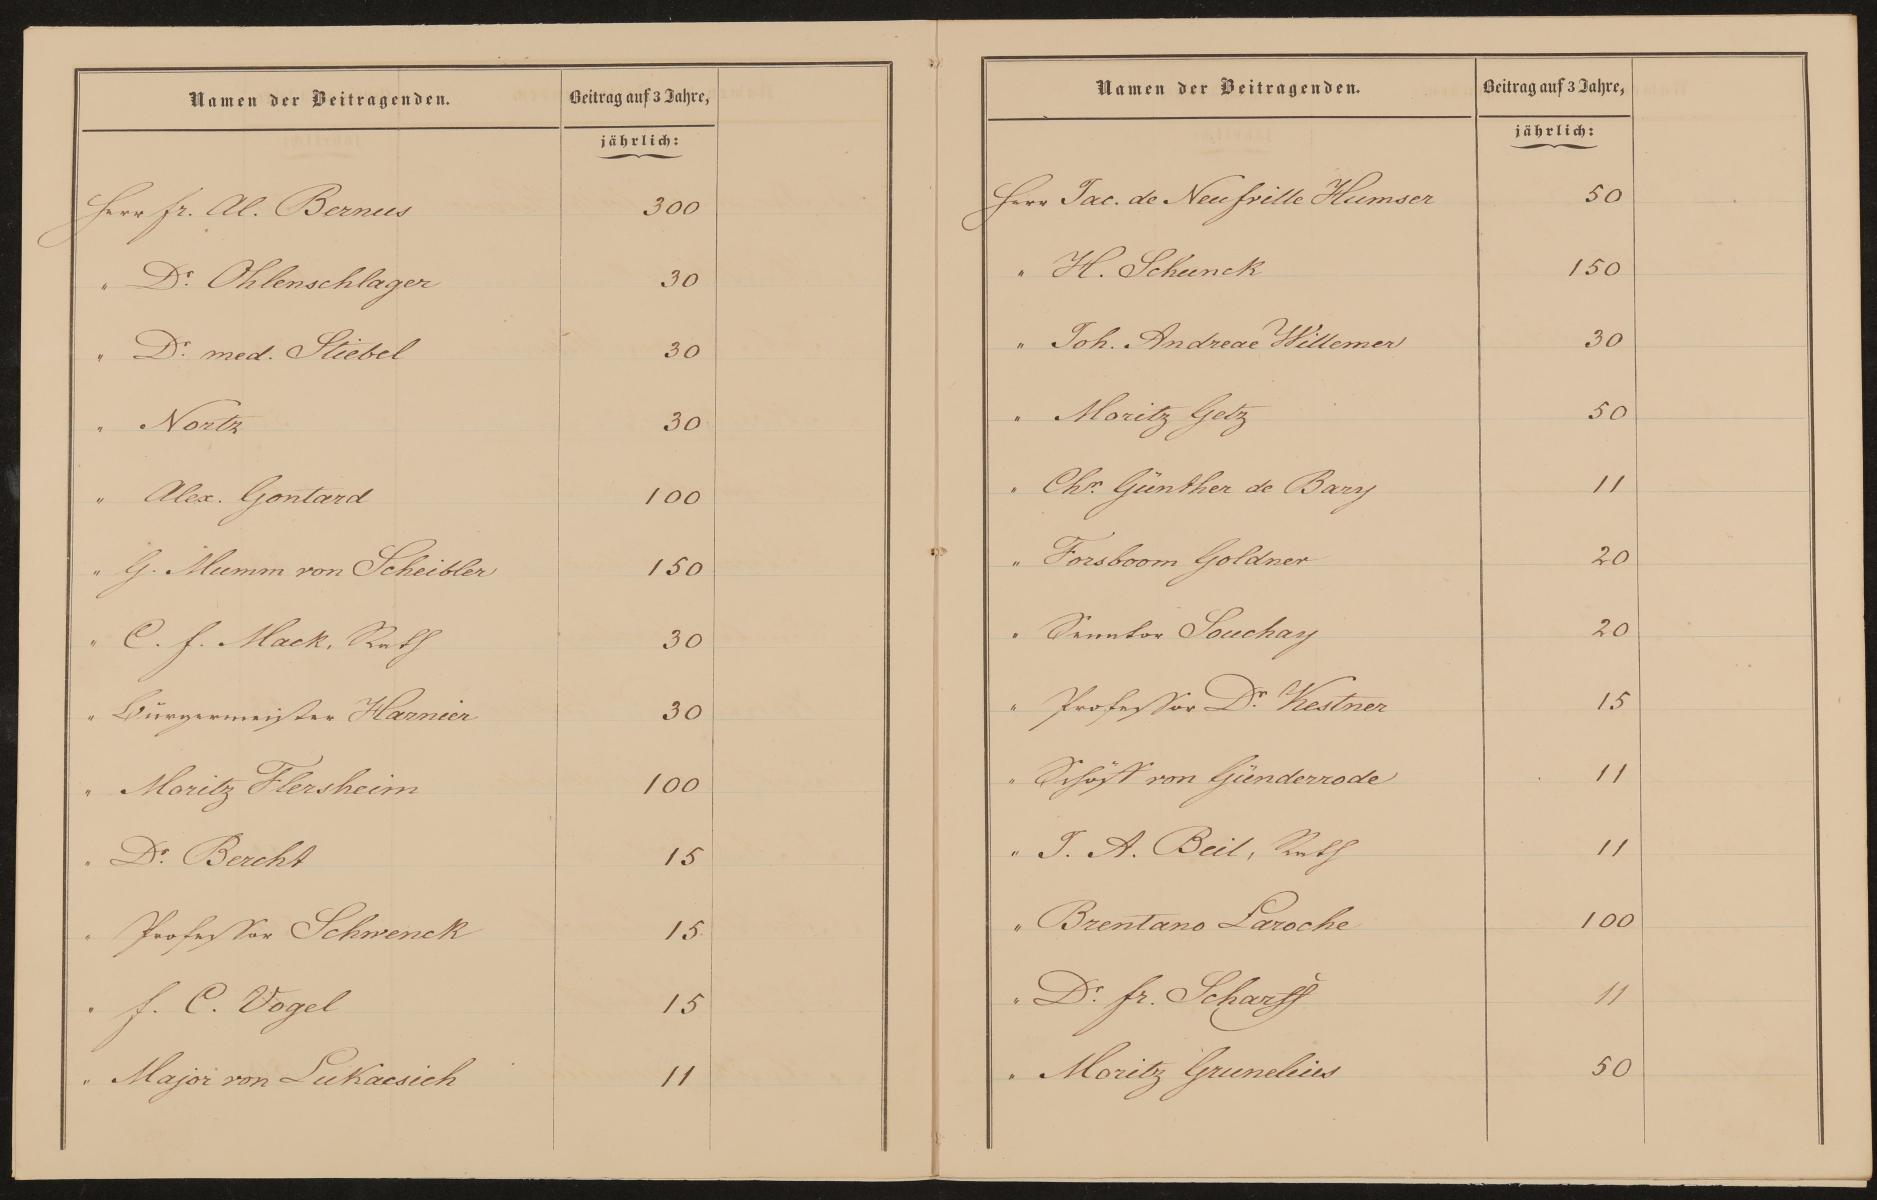 Namen der Beitragenden. Beitrag auf 3 Jahre,
jährlich:
Herr Fr. Al. Bernus 300
" Dr. Ohlenschlager 30
" Dr. med. Stiebel 30
" Nortz 30
" Alex. Gontard 100
" G. Mumm von Scheibler 150
" C. F. Mack, Rath 30
" Bürgermeister Harnier 30
" Moritz Flersheim 100
" Dr. Bercht 15
" Professor Schwenck 15
" F. C. Vogel 15
" Major von Lukacsich 11
Namen der Beitragenden. Beitrag auf 3 Jahre,
jährlich:
Herr Jac. de Neufville Humser 50
" H. Schunck 150
" Joh. Andreae Willemer 30
" Moritz Getz 50
" Chr. Günther de Bary 11
" Forsboom Goldner 20
" Senator Souchay 20
" Professor Dr. Kestner 15
" Schöff von Günderrode 11
" J. A. Beil, Rath 11
" Brentano Laroche 100
" Dr. Fr. Scharff 11
" Moritz Grunelius 50